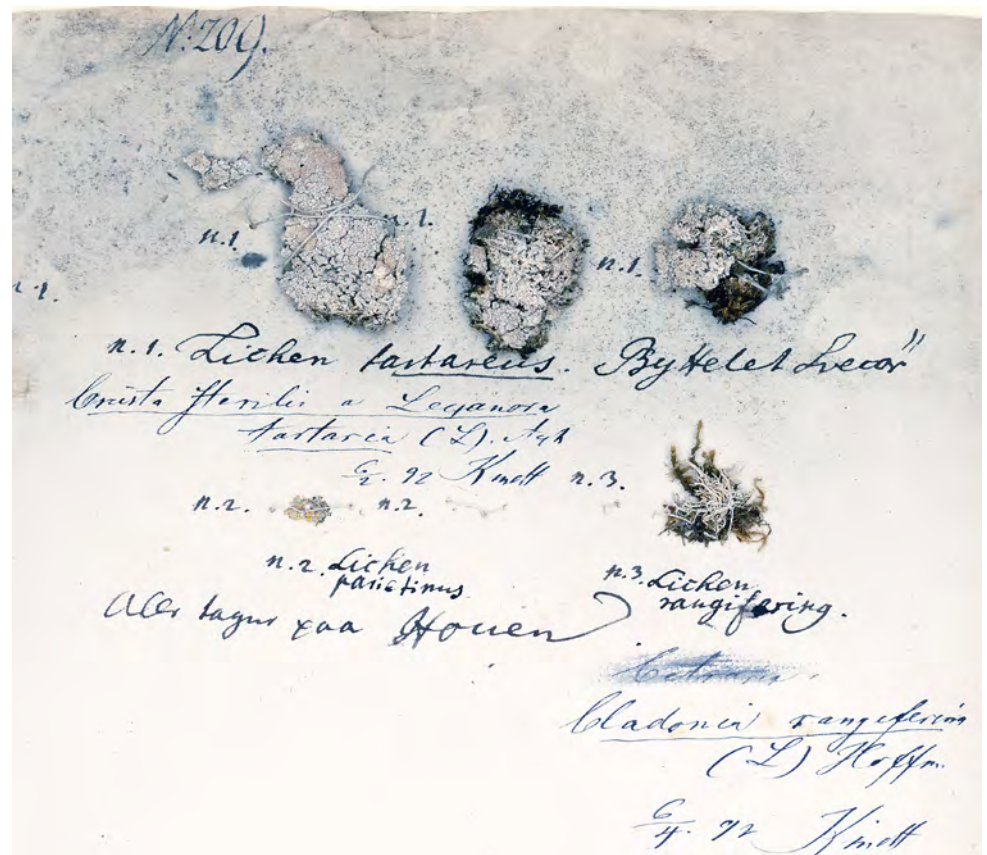 N:209.
n.1. n.1.
n.1.
n.1.
n.1. Lichen tartareus. Byttelet Svecor"
Crusta sterilis a Lecanora
tartarea (L). Ach
92 Kinett n.3.
n.2. n.2.
n.2. Lichen parietinus
n.3. Lichen rangifering.
paa Houen
Cetraria
Cladonia rangiferina
(L) Hoffm.
6/4. 92 Kinett